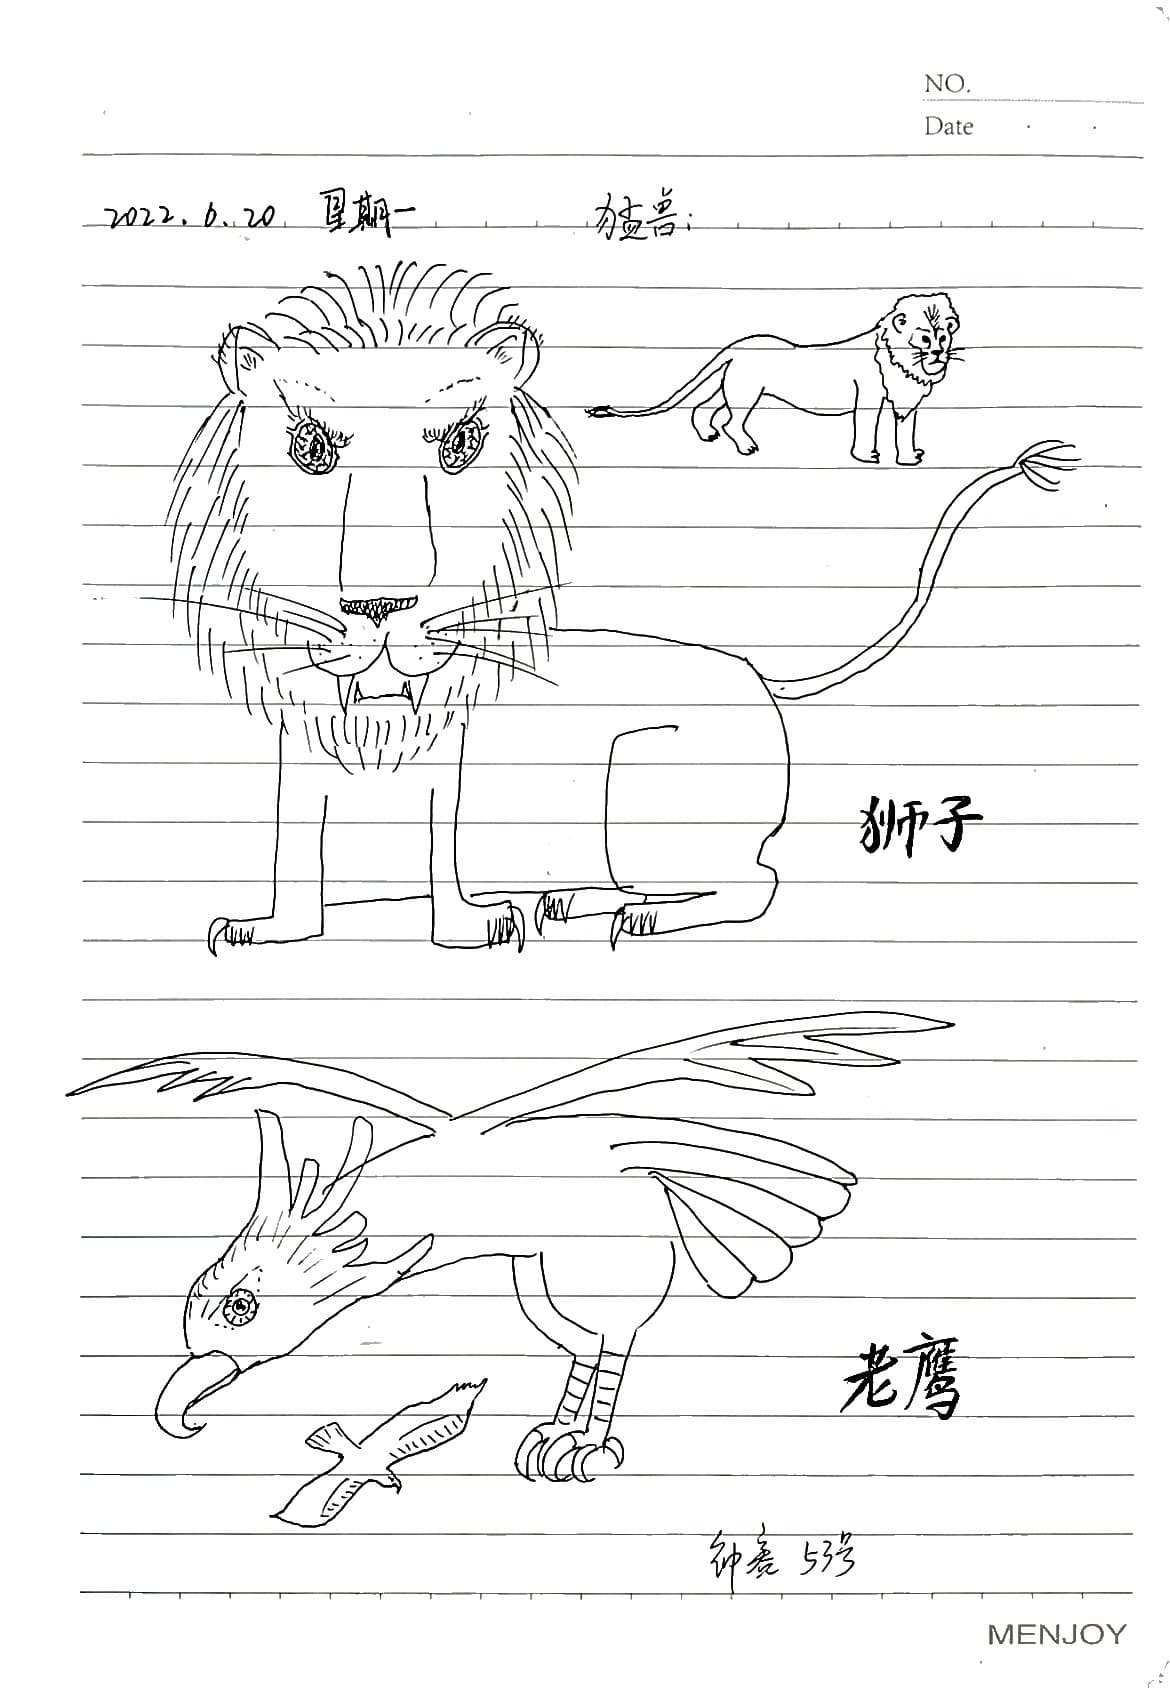 NO.
Date . .
2022.6.20 星期一 猛兽:
狮子
老鹰
53号
MENJOY